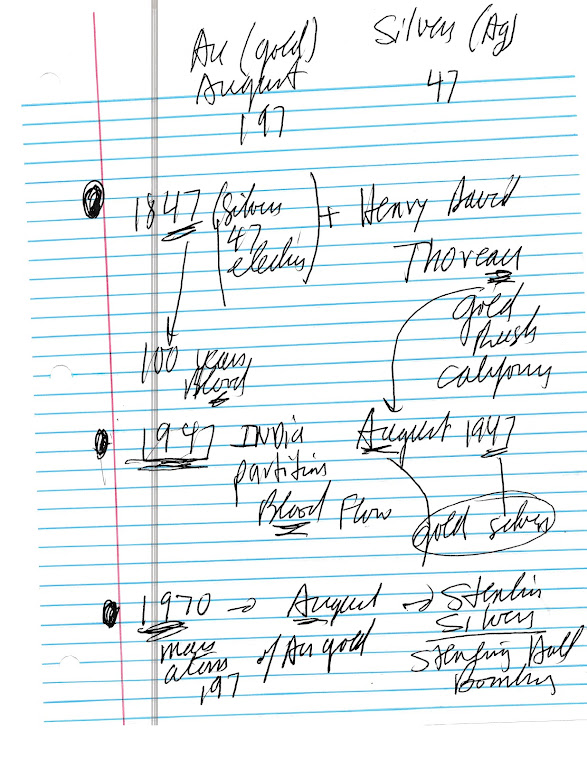 Au (gold)
August
197
Silver (Ag)
47
1847 (Silver
47
electrs) + Henry David
Thoreau
gold
Rush
California
100 years
Blood
1947 India
partition
Blood Flow
August 1947
gold silver
1970 → August → Sterlin
Silver
mass of Au gold
atoms
197
Sterling Hall
Bombing